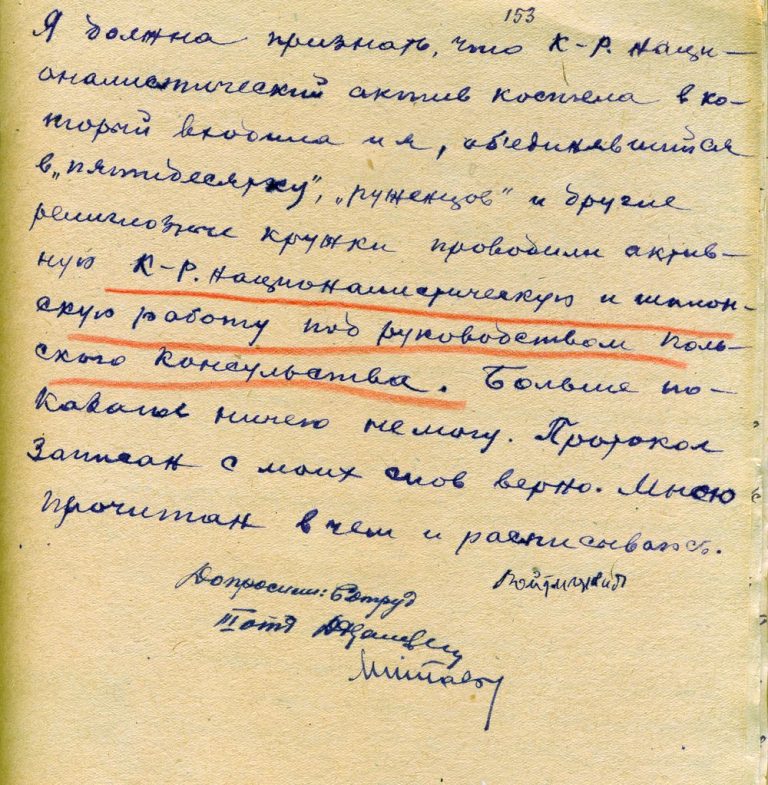 153
Я должна признать, что К-Р. наци-
оналистический актив костела в ко-
торый входила и я, объединявшийся
в „пятидесятку", „руженцов" и другие
религиозные кружки проводили актив-
ную К-Р. националистическую и шпион-
скую работу под руководством поль-
ского консульства. Больше по-
казать ничего не могу. Протокол
записан с моих слов верно. Мною
прочитан в чем и расписываюсь.
Допросил: Сотруд